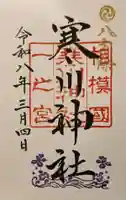 相模國
寒川神社
一之宮
令和八年三月四日